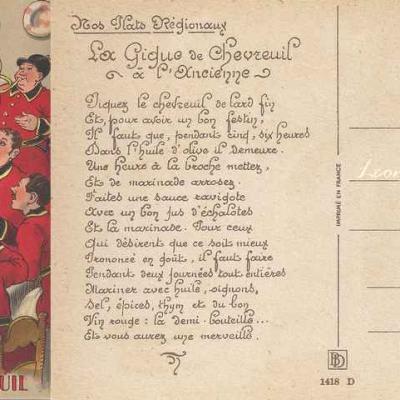 Nos Plats Régionaux
La Gigue de Chevreuil
à l'Ancienne
Piquez le chevreuil de lard fin
Et, pour avoir un bon festin,
Il faut que, pendant cinq, six heures
Dans l'huile d'olive il demeure.
Une heure à la broche mettez,
Et de marinade arrosez.
Faites une sauce ravigote
Avec un bon jus d'échalotes
Et la marinade. Pour ceux
Qui désirent que ce soit mieux
Prononcé en goût, il faut faire
Pendant deux journées tout entières
Mariner avec huile, oignons,
Sel, épices, thym et du bon
Vin rouge : la demi-bouteille...
Et vous aurez une merveille.
IMPRIMÉ EN FRANCE
BD
1418 D
UIL